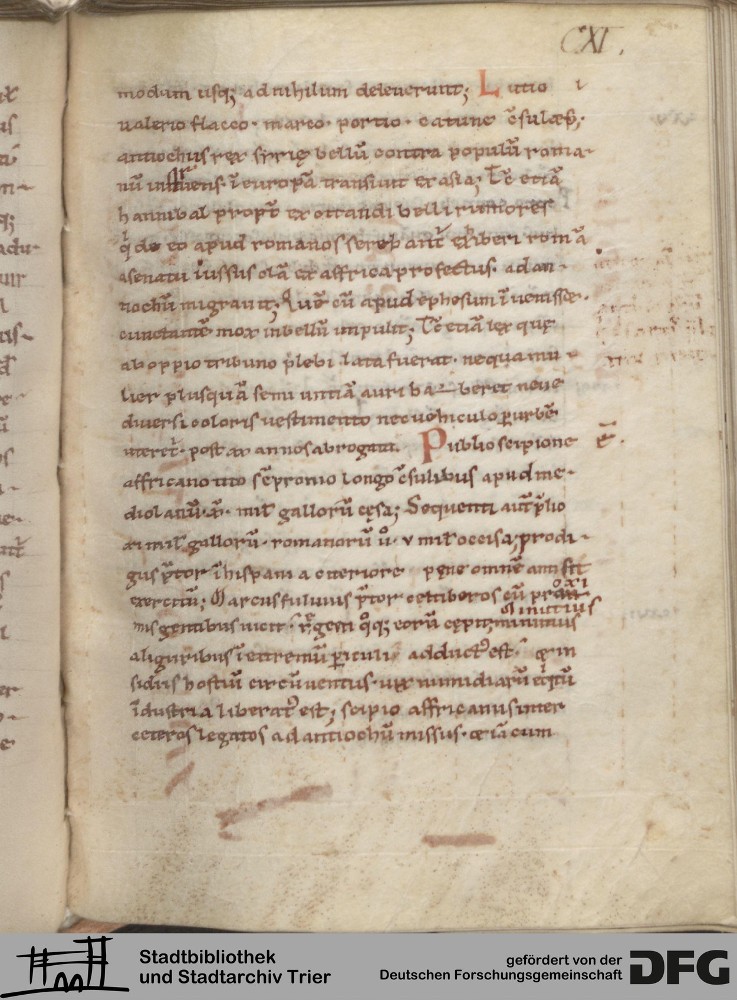 CXI.
modum usq; ad nihilum deleuerunt; Lutio
ualerio flacco · marco · portio · catune c̄sulaƀ;
antiochus rex syrię bellū contra populū roma-
nū instruens ī europā transiuit ex asia; Tc̄ etiā
hannibal propt̄ excitandi belli rumores
de eo apud romanos exiberi romā
asenatu iussus clā ex affrica profectus · ad an-
tiochū migrauit; cū apud ephesum īuenisse ·
cunctantē mox inbellū impulit; Tc̄ etiā lex quę
ab oppio tribuno plebi lata fuerat · nequa mu-
lier plusquā semi untiā auri haberet neue
diuersi coloris uestimento nec uehiculo ꝑ urbē
post xx annos abrogata. Publio scipione ē.
affricano tito sēpronio longo c̄sulibus apud me-
diolanū · x̄ · mil̄ gallorū cęsa; Sequenti aut̄ p̄lio
xi mil̄ gallorū · romanorū u̇ · v mil̄ occisa; prodi-
gus p̄tor ī hispania citeriore pene omnē amisit
exercitū; Marcus fuluius p̄tor celtiberos cū proxi
mis gentibus uicit · regem qq; eorū cępit; Minutius
aliguribus ī extremū ꝑiculi adductꝰ est · &in
sidiis hostiū circūuentus · uix numidiarū equitū
īdustria liberatꝰ est; scipio affricanus inter
ceteros legatos ad antiochū missus · &iā cum
Stadtbibliothek
und Stadtarchiv Trier
gefördert von der
Deutschen Forschungsgemeinschaft
DFG